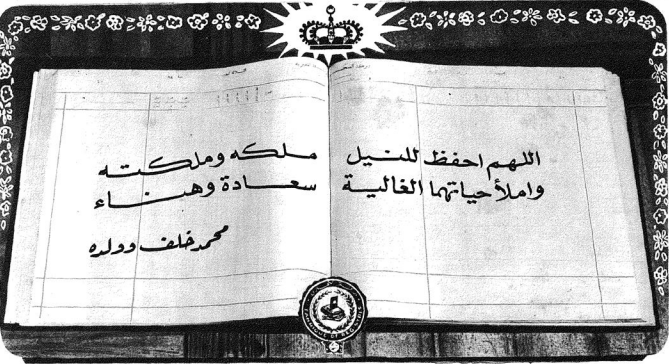 اللهم احفظ للنيل ملكه وملكته
واملأ حياتهما الغالية سعادة وهناء
محمد خلف وولده